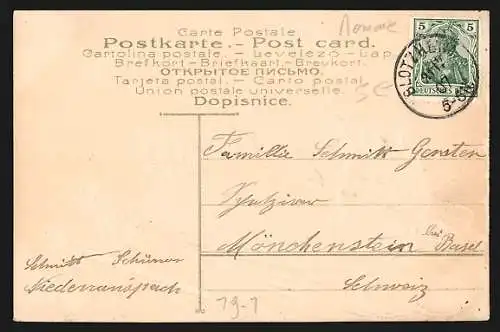 Carte Postale
Postkarte.- Post card.
Cartolina postale.- Levelező-Lap
Brefkort-Briefkaart-Brevkort.
ОТКРЫТОЕ ПИСЬМО.
Tarjeta postal.- Carto postal.
Union postale universelle.
Dopisnice.
5 5
DEUTSCHES REICH
BLOTZHEIM
5-6N
Familie Schmitt Gersten
Mönchenstein bei Basel
Schweiz
Schmitt
Niederranspach
19-1